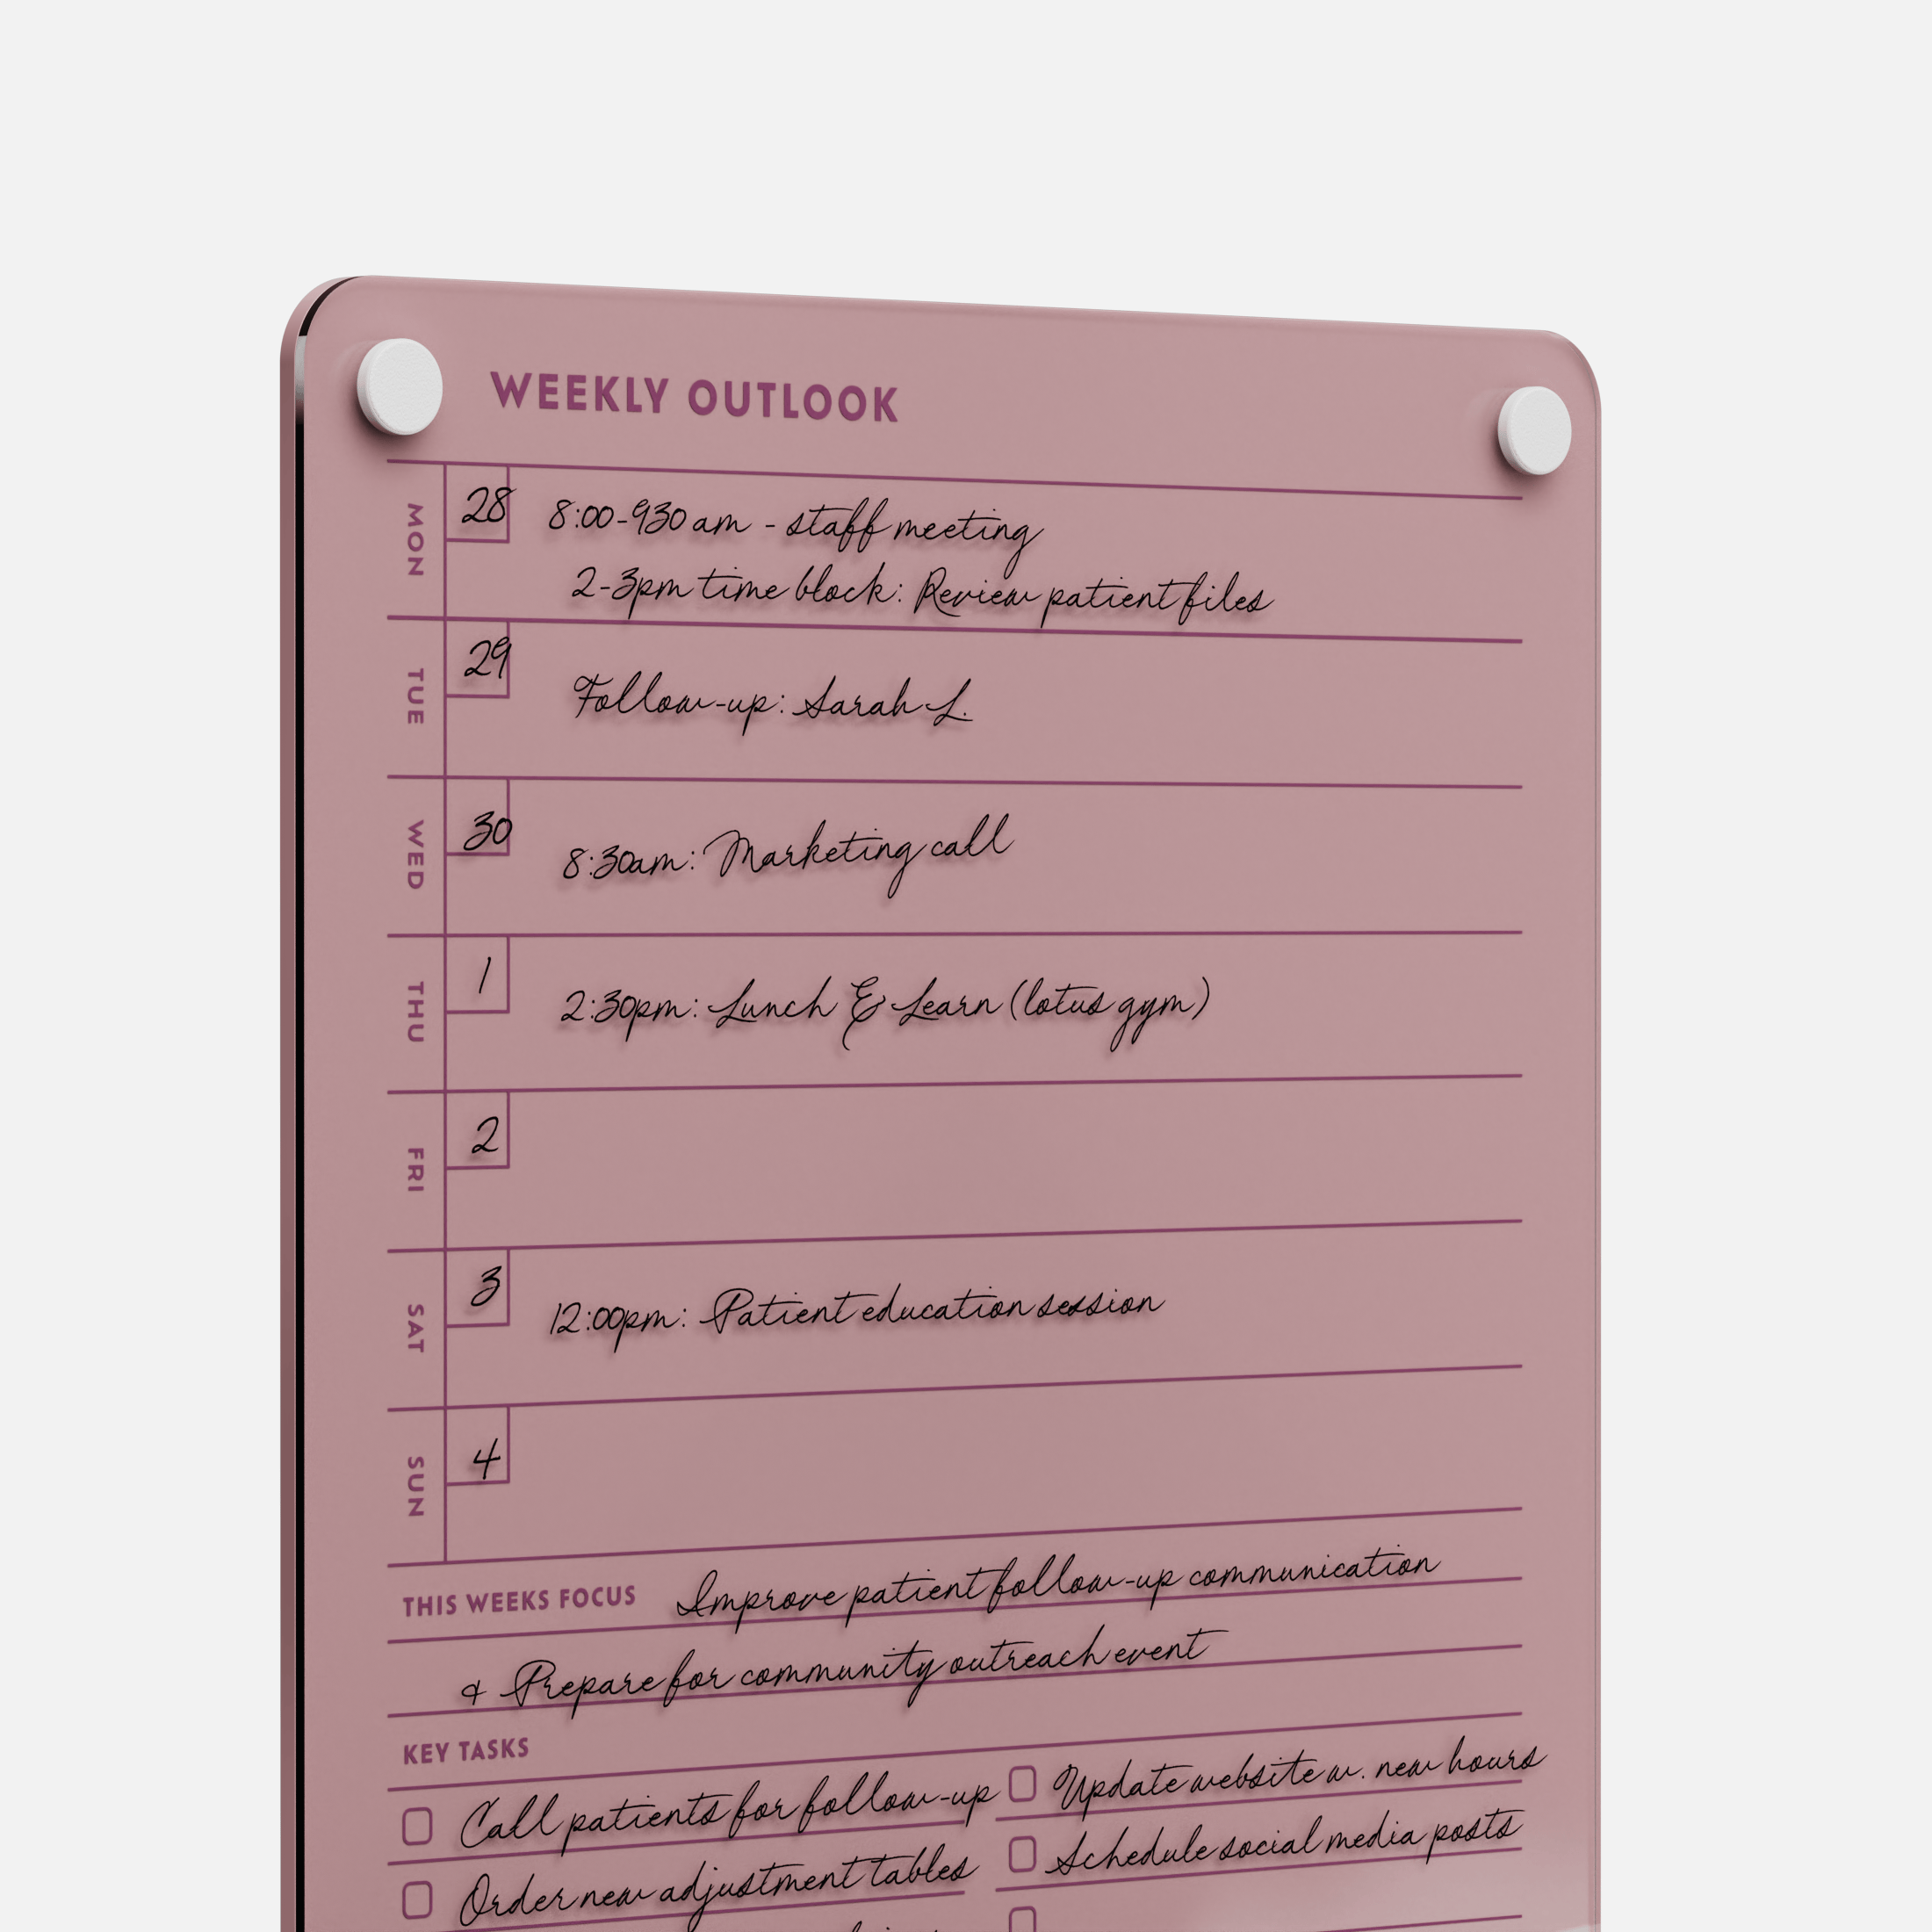 WEEKLY OUTLOOK
MON
28
8:00-930am - staff meeting
2-3pm time block: Review patient files
TUE
29
Follow-up: Sarah L.
WED
30
8:30am: Marketing call
THU
1
2:30pm: Lunch & Learn (lotus gym)
FRI
2
SAT
3
12:00pm: Patient education session
SUN
4
THIS WEEKS FOCUS Improve patient follow-up communication
& Prepare for community outreach event
KEY TASKS
Call patients for follow-up
Update website w. new hours
Order new adjustment tables
Schedule social media posts